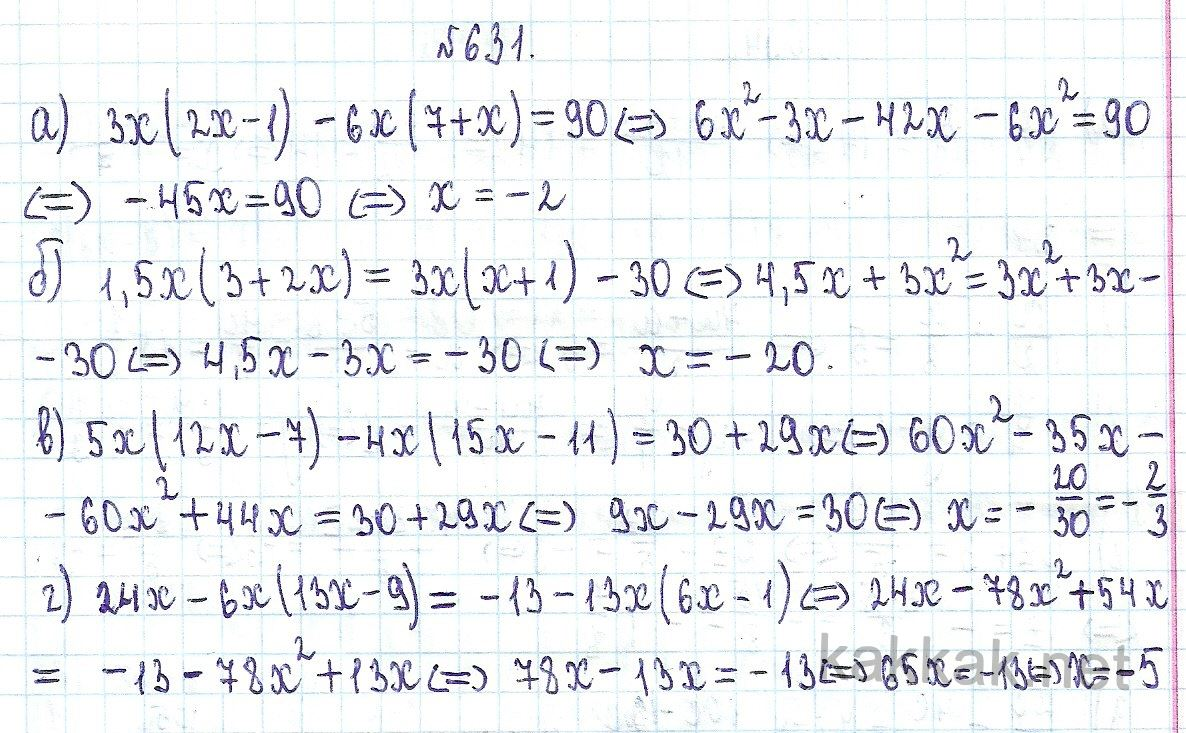 №631.
а) 3x(2x-1) -6x(7+x)=90 <=> 6x²-3x-42x-6x²=90
<=> -45x=90 <=> x=-2
б) 1,5x(3+2x)=3x(x+1)-30 <=> 4,5x+3x²=3x²+3x-
-30 <=> 4,5x-3x=-30 <=> x=-20.
в) 5x(12x-7)-4x(15x-11)=30+29x <=> 60x²-35x-
-60x²+44x=30+29x <=> 9x-29x=30 <=> x=-20/30=-2/3
г) 24x-6x(13x-9)=-13-13x(6x-1) <=> 24x-78x²+54x
= -13-78x²+13x <=> 78x-13x=-13 <=> 65x=-13 <=> x=-5
kakkak.net